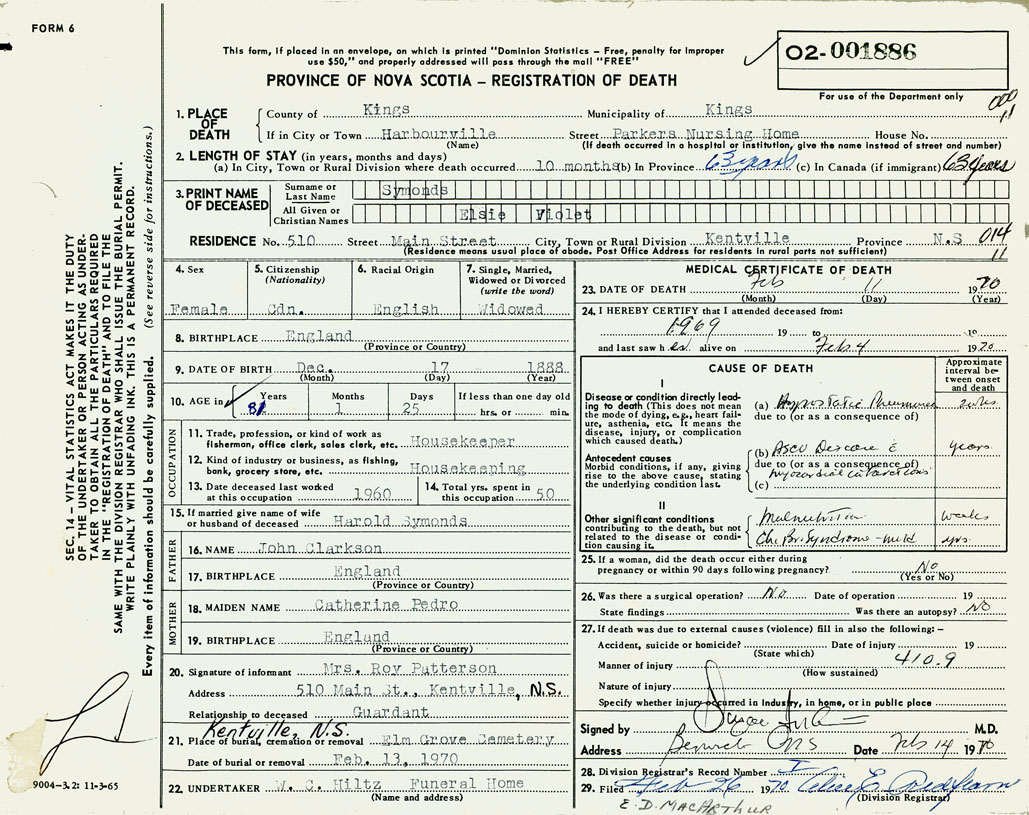 FORM 6
This form, if placed in an envelope, on which is printed "Dominion Statistics – Free, penalty for improper
use $50," and properly addressed will pass through the mail "FREE"
PROVINCE OF NOVA SCOTIA – REGISTRATION OF DEATH
02-001886
For use of the Department only
1. PLACE OF DEATH
County of Kings Municipality of Kings
If in City or Town Harbourville Street Parkers Nursing Home House No.
(Name) (If death occurred in a hospital or institution, give the name instead of street and number)
2. LENGTH OF STAY (in years, months and days)
(a) In City, Town or Rural Division where death occurred 10 months (b) In Province 63 years (c) In Canada (if immigrant) 63 years
3. PRINT NAME OF DECEASED
Surname or Last Name Symonds
All Given or Christian Names Elsie Violet
RESIDENCE No. 510 Street Main Street City, Town or Rural Division Kentville Province N.S 014
(Residence means usual place of abode. Post Office Address for residents in rural parts not sufficient) 11
4. Sex
Female
5. Citizenship
(Nationality)
Cdn.
6. Racial Origin
English
7. Single, Married,
Widowed or Divorced
(write the word)
Widowed
8. BIRTHPLACE England
(Province or Country)
9. DATE OF BIRTH Dec. 17 1888
(Month) (Day) (Year)
10. AGE in Years Months Days If less than one day old
81 1 25 hrs. or min.
OCCUPATION
11. Trade, profession, or kind of work as
fisherman, office clerk, sales clerk, etc. Housekeeper
12. Kind of industry or business, as fishing,
bank, grocery store, etc. Housekeeping
13. Date deceased last worked
at this occupation 1960
14. Total yrs. spent in
this occupation 50
15. If married give name of wife
or husband of deceased Harold Symonds
FATHER
16. NAME John Clarkson
17. BIRTHPLACE England
(Province or Country)
MOTHER
18. MAIDEN NAME Catherine Pedro
19. BIRTHPLACE England
(Province or Country)
20. Signature of informant Mrs. Roy Patterson
Address 510 Main St., Kentville, N.S.
Relationship to deceased Guardant
Kentville, N.S.
21. Place of burial, cremation or removal Elm Grove Cemetery
Date of burial or removal Feb. 13, 1970
22. UNDERTAKER W. C. Hiltz Funeral Home
(Name and address)
MEDICAL CERTIFICATE OF DEATH
23. DATE OF DEATH Feb 11 1970
(Month) (Day) (Year)
24. I HEREBY CERTIFY that I attended deceased from:
1969 19 to 19
and last saw her alive on Feb 4 1970
CAUSE OF DEATH
Approximate
interval be-
tween onset
and death
I
Disease or condition directly lead-
ing to death (This does not mean
the mode of dying, e.g., heart fail-
ure, asthenia, etc. It means the
disease, injury, or complication
which caused death.)
(a) Hypostatic Pneumonia 2 wks
due to (or as a consequence of)
Antecedent causes
Morbid conditions, if any, giving
rise to the above cause, stating
the underlying condition last.
(b) ASCV Disease years
due to (or as a consequence of)
myocardial infarctions
(c)
II
Other significant conditions
contributing to the death, but not
related to the disease or condi-
tion causing it.
Malnutrition weeks
Ch. Br. Syndrome - mild yrs.
25. If a woman, did the death occur either during
pregnancy or within 90 days following pregnancy? NO
(Yes or No)
26. Was there a surgical operation? No Date of operation 19
State findings Was there an autopsy? NO
27. If death was due to external causes (violence) fill in also the following: –
Accident, suicide or homicide? Date of injury 19
(State which)
410.9
Manner of injury
(How sustained)
Nature of injury
Specify whether injury occurred in Industry, in home, or in public place
Signed by M.D.
Address Berwick NS Date Feb 14 1970
28. Division Registrar's Record Number
29. Filed Feb 26 1970
(Division Registrar)
E. D. MACARTHUR
SEC. 14 – VITAL STATISTICS ACT MAKES IT THE DUTY
OF THE UNDERTAKER OR PERSON ACTING AS UNDER-
TAKER TO OBTAIN ALL THE PARTICULARS REQUIRED
IN THE "REGISTRATION OF DEATH" AND TO FILE THE
SAME WITH THE DIVISION REGISTRAR WHO SHALL ISSUE THE BURIAL PERMIT.
WRITE PLAINLY WITH UNFADING INK. THIS IS A PERMANENT RECORD.
Every item of information should be carefully supplied. (See reverse side for instructions.)
9004-3.2: 11-3-65